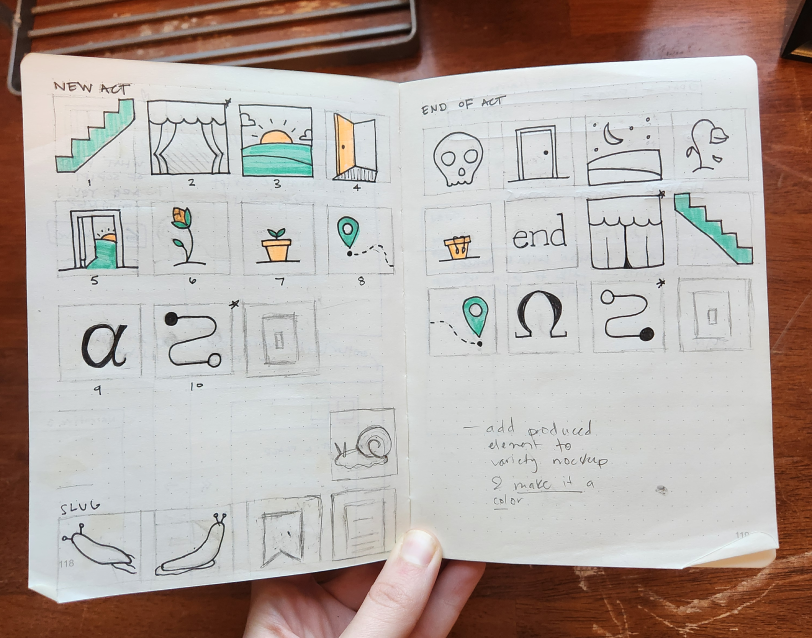 NEW ACT
1
2
3
4
5
6
7
8
α
9
10
SLUG
118
END OF ACT
end
Ω
- add produced
element to
variety mockup
& make it a
color
119